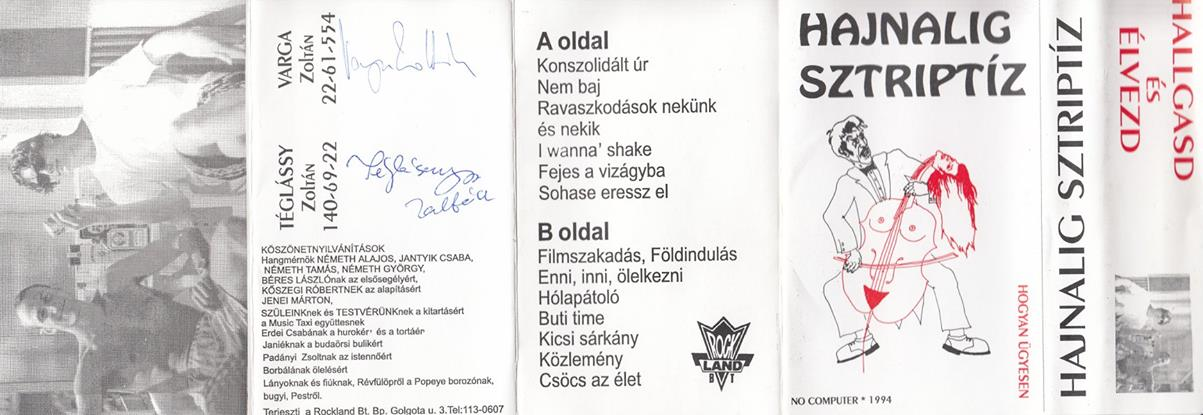 VARGA
Zoltán
22-61-554
TÉGLÁSSY
Zoltán
140-69-22
KÖSZÖNETNYILVÁNÍTÁSOK
Hangmérnök NÉMETH ALAJOS, JANTYIK CSABA,
NÉMETH TAMÁS, NÉMETH GYÖRGY,
BÉRES LÁSZLÓnak az elsősegélyért,
KŐSZEGI RÓBERTNEK az alapításért
JENEI MÁRTON,
SZÜLEINKnek és TESTVÉRÜNKnek a kitartásért
a Music Taxi együttesnek
Erdei Csabának a hurokér' és a tortáér
Janiéknak a budaörsi bulikért
Padányi Zsoltnak az istennőért
Borbálának ölelésért
Lányoknak és fiúknak, Révfülöpről a Popeye borozónak,
bugyi, Pestről.
Terjeszti a Rockland Bt. Bp. Golgota u. 3.Tel:113-0607
A oldal
Konszolidált úr
Nem baj
Ravaszkodások nekünk
és nekik
I wanna' shake
Fejes a vizágyba
Sohase eressz el
B oldal
Filmszakadás, Földindulás
Enni, inni, ölelkezni
Hólapátoló
Buti time
Kicsi sárkány
Közlemény
Csöcs az élet
ROCK
LAND
BT
HAJNALIG
SZTRIPTÍZ
HOGYAN ÜGYESEN
NO COMPUTER * 1994
HAJNALIG SZTRIPTÍZ
HALLGASD
ÉS
ÉLVEZD